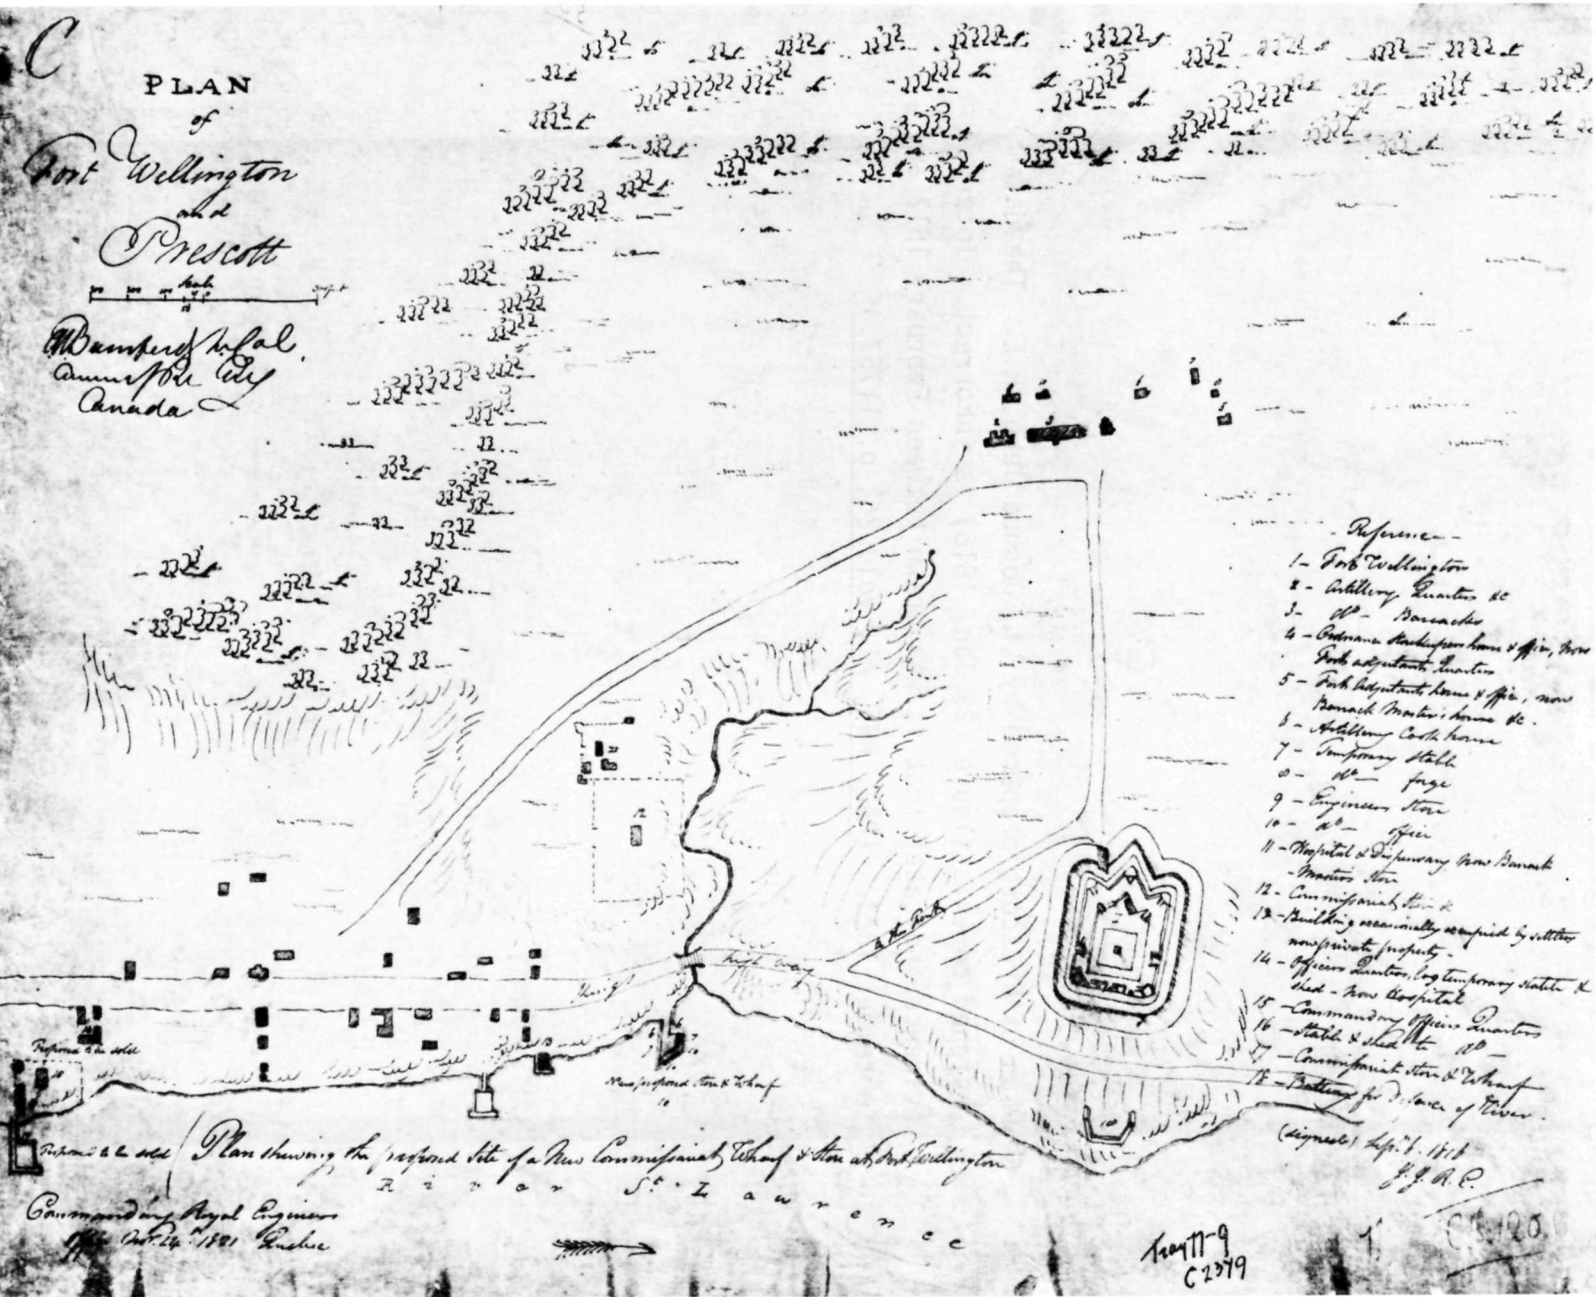 C
PLAN
of
Fort Wellington
and
Prescott
Scale
Canada
Reference
1 - Fort Wellington
2 - Artillery Quarters &c
3 - do - Barracks
4 - Ordnance Storekeepers house & office, now
Fort adjutants Quarters
5 - Fort Adjutants house & office, now
Barrack Master's house &c.
6 - Artillery Cook house
7 - Temporary Stable
8 - do - forge
9 - Engineers Store
10 - do - office
11 - Hospital & Dispensary now Barrack
Masters Store
12 - Commissariat Store &c
13 - Building occasionally occupied by settlers
now private property -
14 - Officers Quarters, log temporary stable &
shed - now Hospital
15 - Commanding Officers Quarters
16 - Stable & shed to do -
17 - Commissariat Store & Wharf
18 - Battery for Defence of River.
(signed) Sepr. 6. 1816
J. J. R. E.
to the Fort
high way
12
13
Proposed to be sold
New proposed Store & Wharf
Proposed to be sold
Plan shewing the proposed site of a New Commissariat Wharf & Store at Fort Wellington
River St. Lawrence
Commanding Royal Engineers
Office Novr. 24th 1821 Quebec
Tray 11-9
C 2379